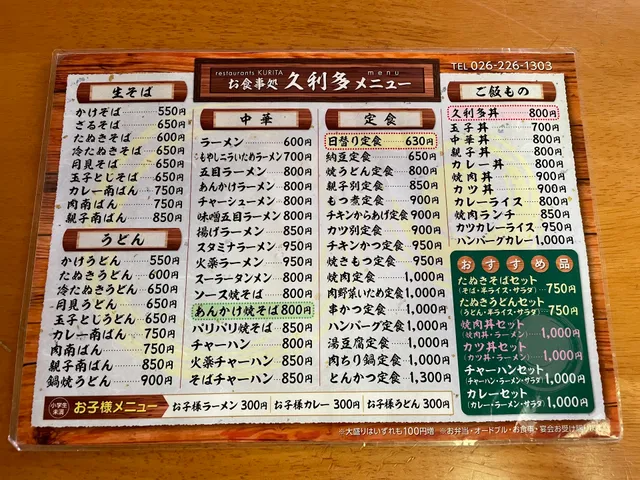 restaurants KURITA menu
お食事処 久利多 メニュー
TEL 026-226-1303
生そば
かけそば 550円
ざるそば 550円
たぬきそば 600円
冷たぬきそば 650円
月見そば 650円
玉子とじそば 650円
カレー南ばん 750円
肉南ばん 750円
親子南ばん 850円
うどん
かけうどん 550円
たぬきうどん 600円
冷たぬきうどん 650円
月見うどん 650円
玉子とじうどん 650円
カレー南ばん 750円
肉南ばん 750円
親子南ばん 850円
鍋焼うどん 900円
中華
ラーメン 600円
もやしニラいためラーメン 700円
五目ラーメン 800円
あんかけラーメン 800円
チャーシューメン 800円
味噌五目ラーメン 800円
揚げラーメン 850円
スタミナラーメン 950円
火薬ラーメン 950円
マーラータンメン 800円
ソース焼そば 800円
あんかけ焼そば 800円
パリパリ焼そば 850円
チャーハン 800円
火薬チャーハン 850円
そばチャーハン 850円
定食
日替り定食 630円
納豆定食 650円
焼うどん定食 800円
親子別定食 850円
もつ煮定食 900円
チキンからあげ定食 900円
カツ別定食 900円
チキンかつ定食 950円
焼きもつ定食 950円
焼肉定食 1,000円
肉野菜いため定食 1,000円
串かつ定食 1,000円
ハンバーグ定食 1,000円
湯豆腐定食 1,000円
肉ちり鍋定食 1,100円
とんかつ定食 1,300円
ご飯もの
久利多丼 800円
玉子丼 700円
中華丼 800円
親子丼 800円
カレー丼 800円
焼肉丼 900円
カツ丼 900円
カレーライス 800円
焼肉ランチ 850円
カツカレーライス 950円
ハンバーグカレー 1,000円
おすすめ品
たぬきそばセット
(そば・半ライス・サラダ) 750円
たぬきうどんセット
(うどん・半ライス・サラダ) 750円
焼肉丼セット
(焼肉丼・ラーメン) 1,000円
カツ丼セット
(カツ丼・ラーメン) 1,000円
チャーハンセット
(チャーハン・ラーメン・サラダ) 1,000円
カレーセット
(カレー・ラーメン・サラダ) 1,000円
小学生未満 お子様メニュー お子様ラーメン 300円 お子様カレー 300円 お子様うどん 300円
※大盛りはいずれも100円増 ※お弁当・オードブル・お食事・宴会お受け